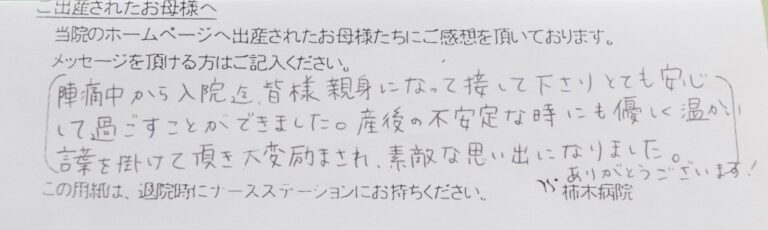 ご出産されたお母様へ
当院のホームページへ出産されたお母様たちにご感想を頂いております。
メッセージを頂ける方はご記入ください。
陣痛中から入院迄、皆様親身になって接して下さりとても安心
して過ごすことができました。産後の不安定な時にも優しく温かい
言葉を掛けて頂き大変励まされ、素敵な思い出になりました。
ありがとうございます!
この用紙は、退院時にナースステーションにお持ちください。
柿木病院